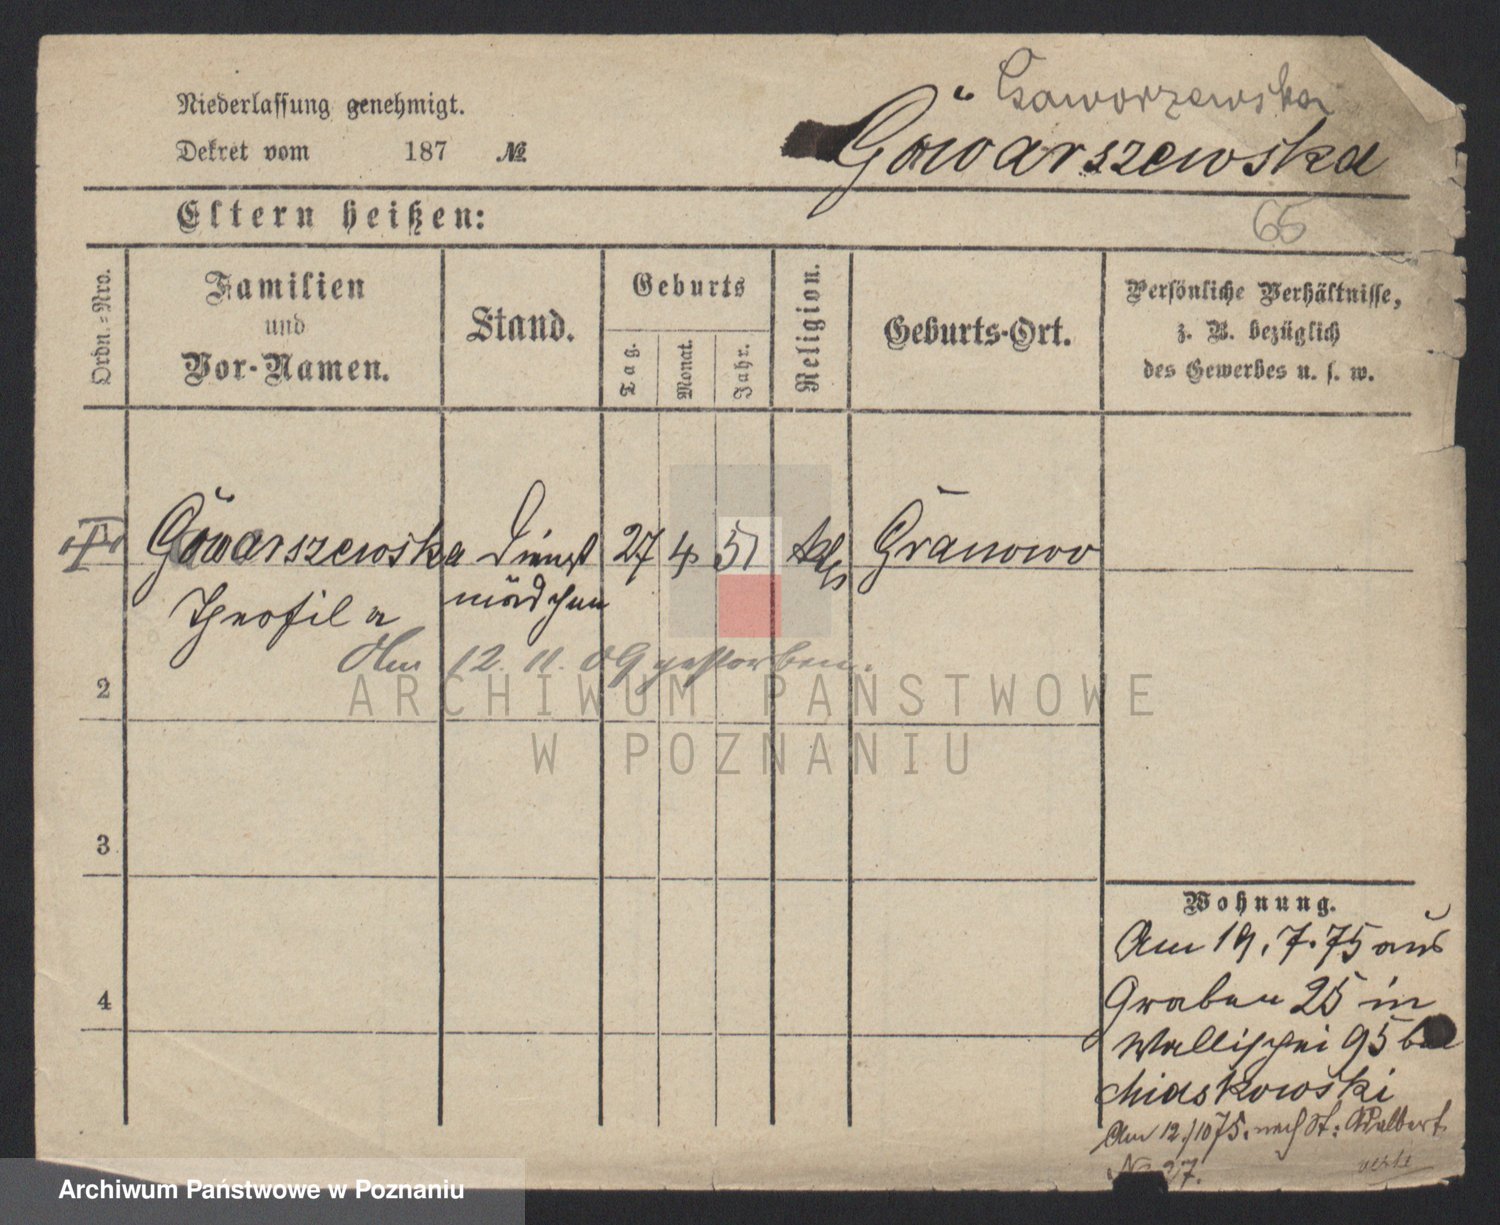 Niederlassung genehmigt.
Dekret vom 187 №
Gaworzewska
Gowarszewska
Eltern heißen:
65
Ordn.-Nro.
Familien
und
Vor-Namen.
Stand.
Geburts
Tag.
Monat.
Jahr.
Religion.
Geburts-Ort.
Persönliche Verhältnisse,
z. B. bezüglich
des Gewerbes u. s. w.
Gowarszewska Dienst 27 4 51 kth Granowo
Theofila mädchen
Am 12. 11. 09 gestorben.
2
3
4
Wohnung.
Am 19.7.75 aus
Graben 25 in
Wallischei 95 bei
Miaskowski
Am 12./10 75. nach St: Adalbert
No 27.
ARCHIWUM PAŃSTWOWE
W POZNANIU
Archiwum Państwowe w Poznaniu